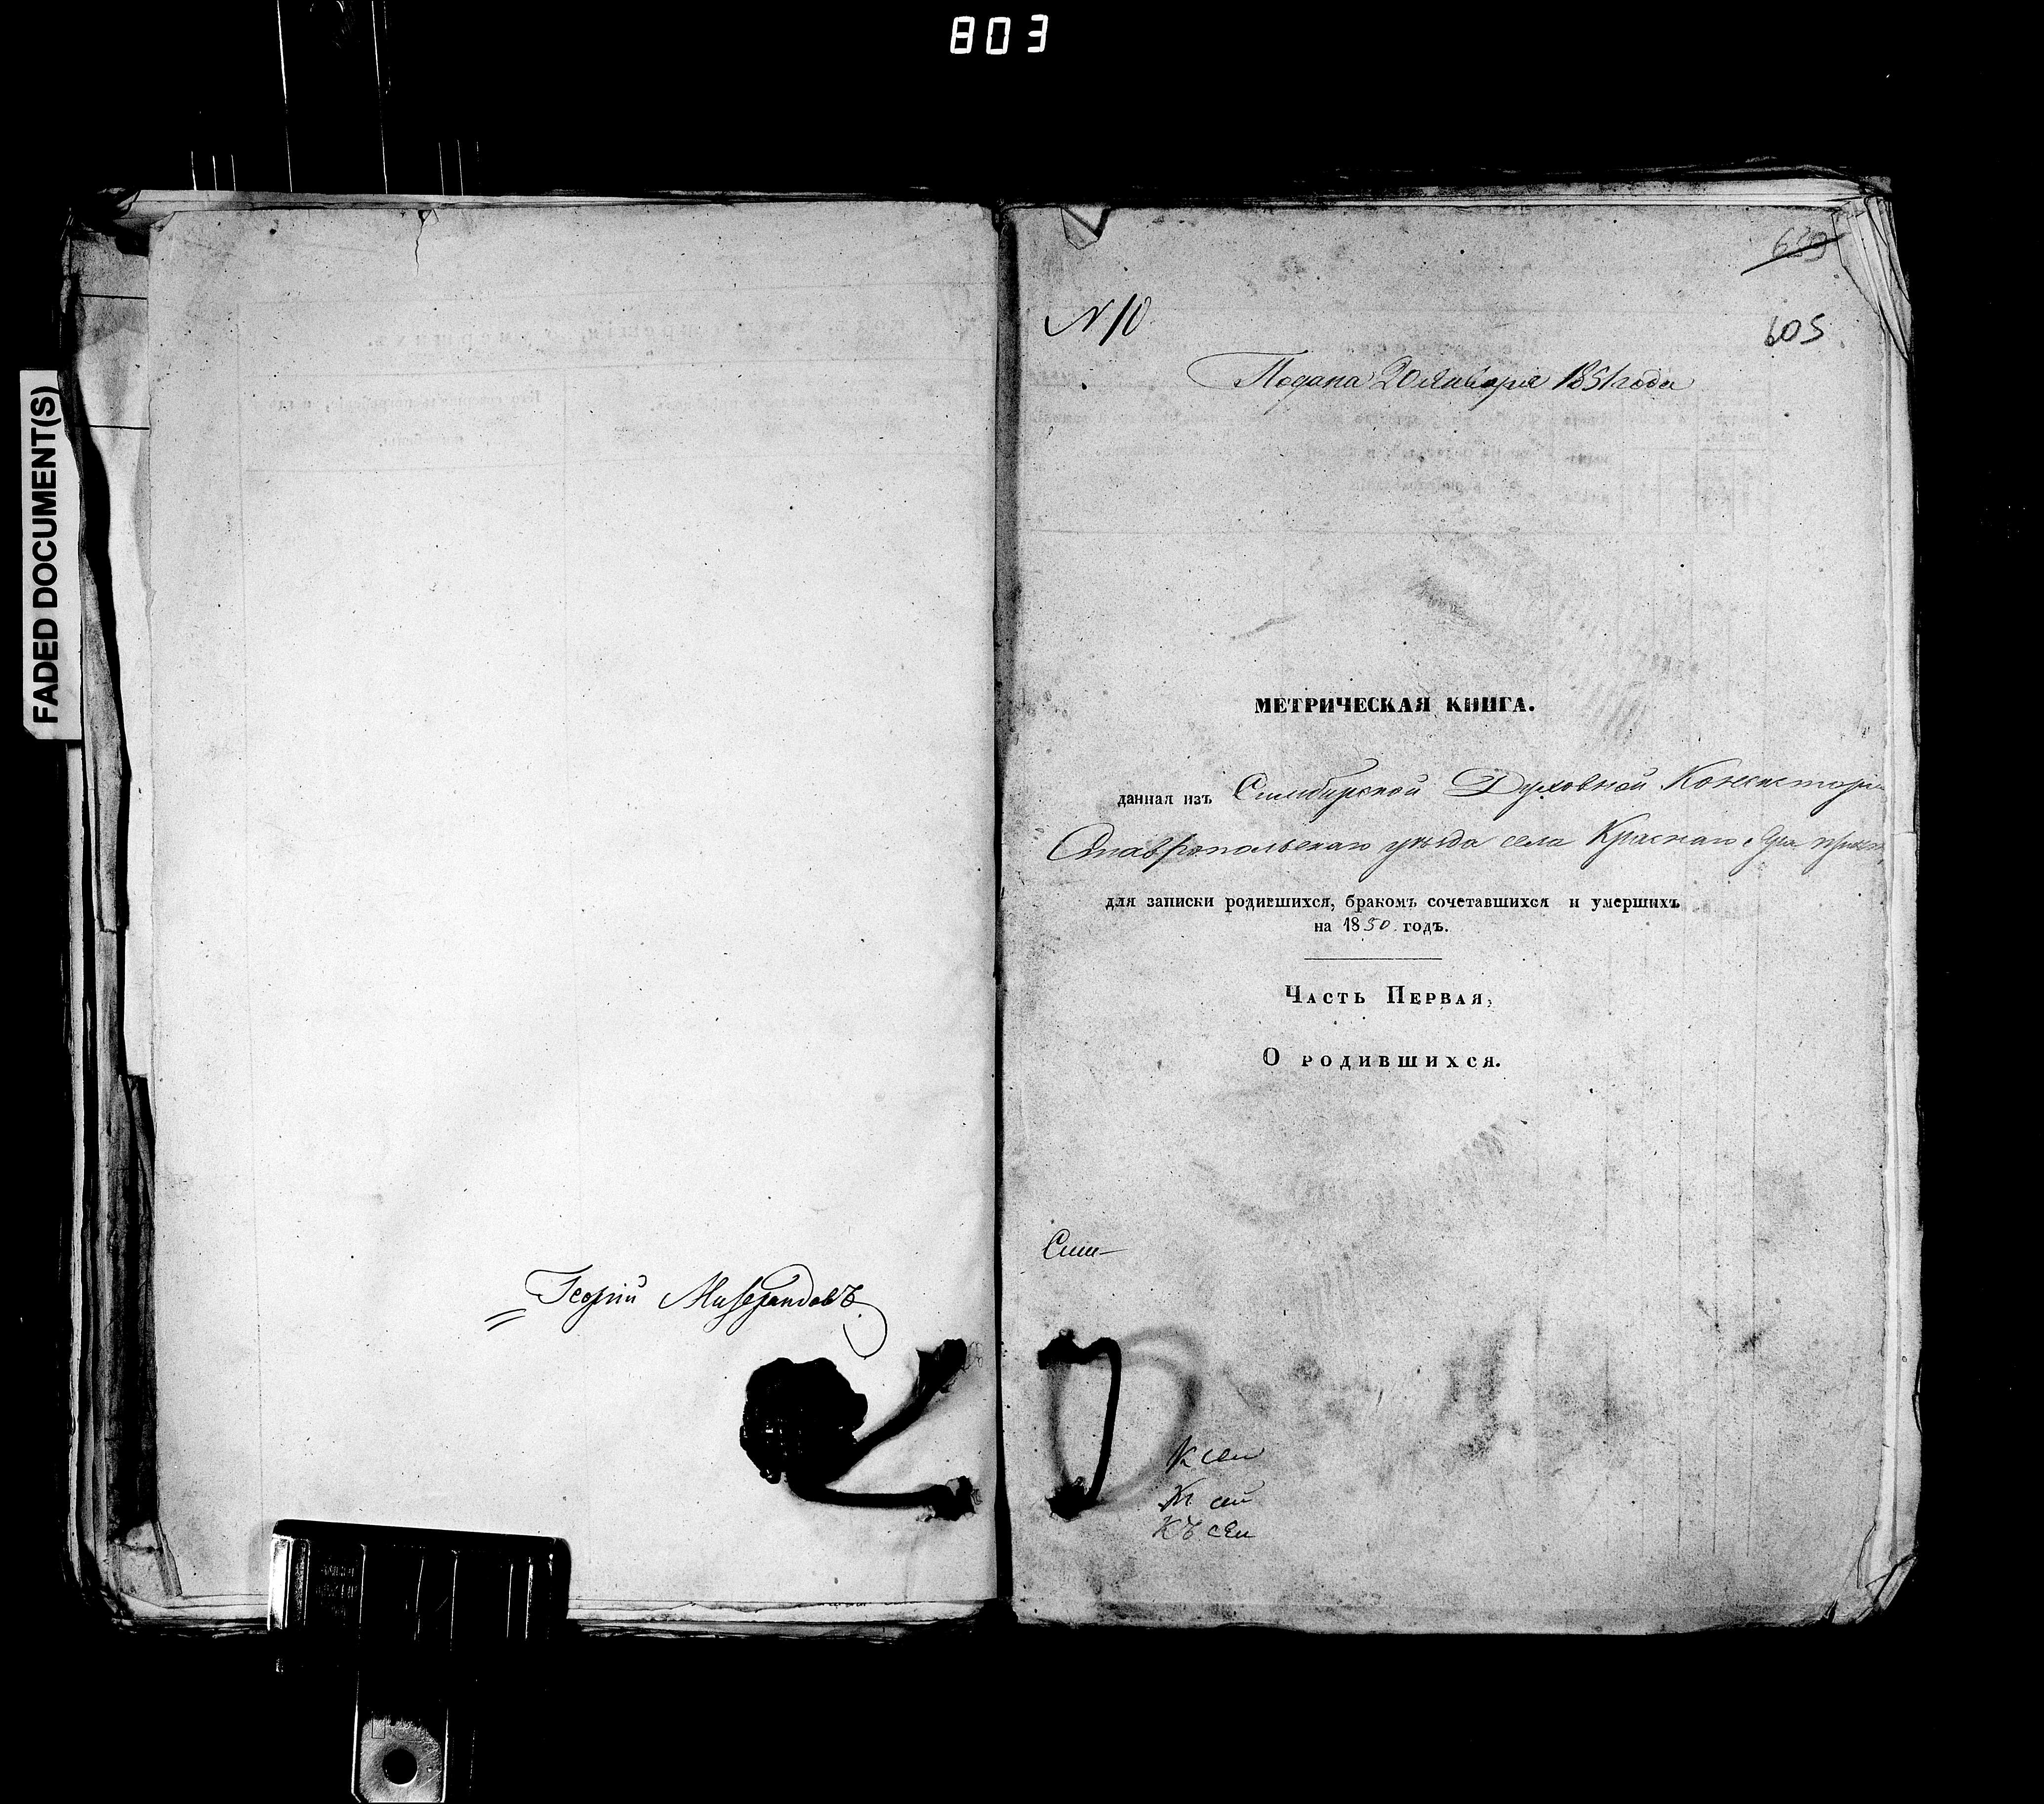 803
FADED DOCUMENT(S)
Георгій
639
N 10
605
Подана 20 Января 1851 года
МЕТРИЧЕСКАЯ КНИГА.
данная изъ Симбирской Духовной Консисторіи
Ставропольскаго уѣзда села Краснаго
для записки родившихся, бракомъ сочетавшихся и умершихъ
на 1850 годъ.
Часть Первая,
О родившихся.
Сим-
К сей
К сей
Къ сей